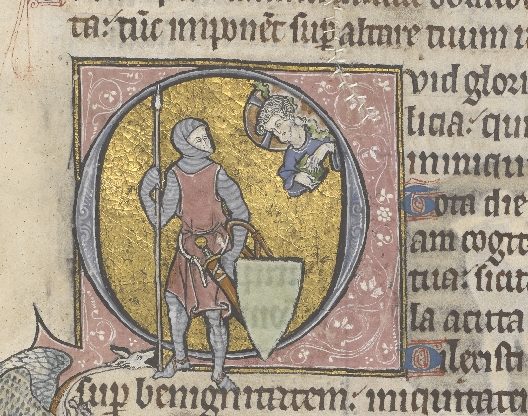 ta: tūc imponēt suꝑ altare tuum
Quid glori
licia: qui
in iniqui
Tota die
am cogit
tua: sicu
la acuta
Dilexisti
suꝑ benignitatem: iniquitate